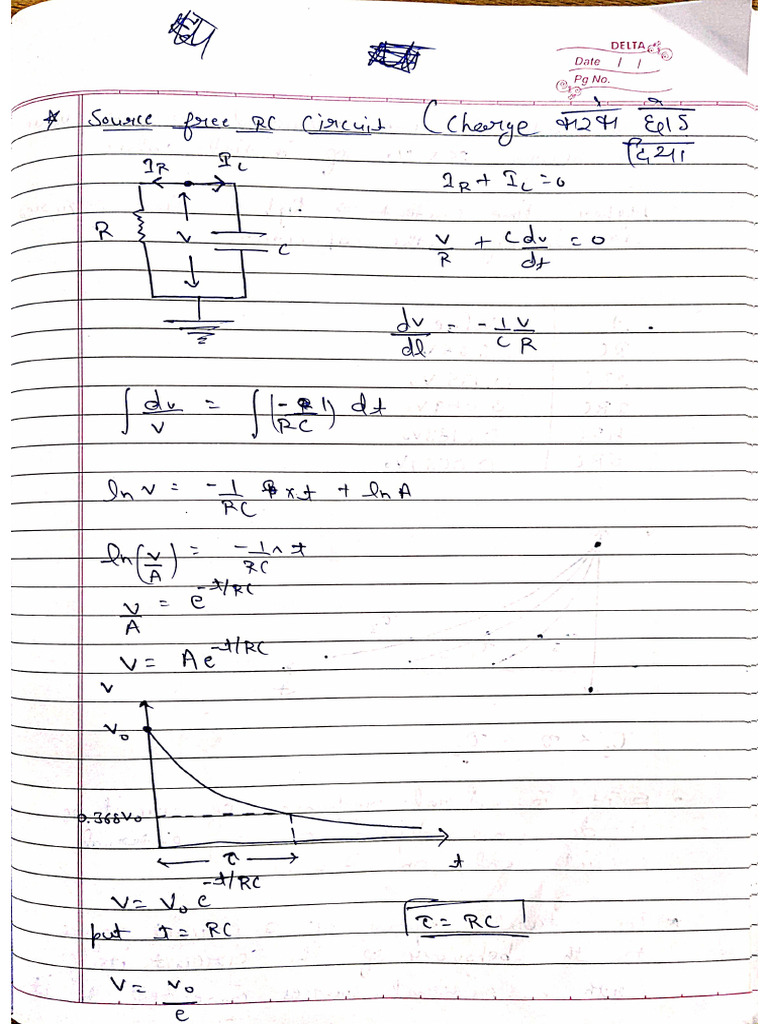 DELTA
Date / /
Pg No.
* Source free RC Circuit (Charge भरके छोड़
दिया
I_R I_C
I_R + I_C = 0
R V C
V/R + C dv/dt = 0
dv/dt = -1/C V/R
∫ dv/v = ∫ (-1/RC) dt
ln v = -1/RC × t + ln A
ln(v/A) = -1/RC × t
v/A = e^{-t/RC}
V = A e^{-t/RC}
V
V₀
0.368V₀
τ t
V = V₀ e^{-t/RC}
put t = RC τ = RC
V = V₀/e